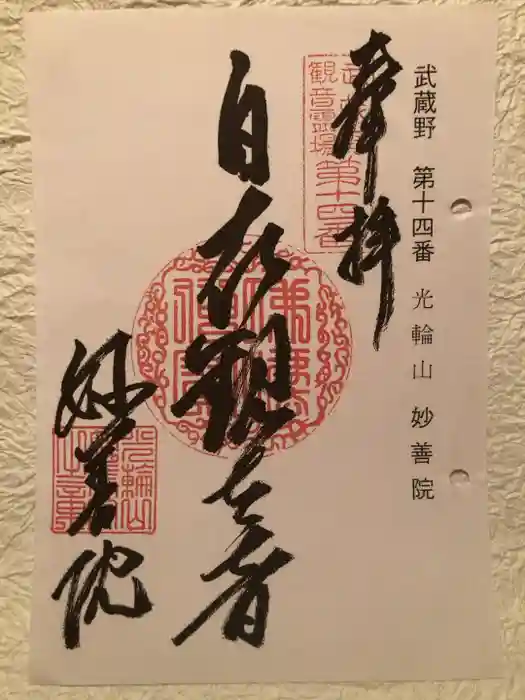 武蔵野 第十四番 光輪山 妙善院
奉拝
武蔵野
観音霊場
第十四番
自在観世音
妙善院